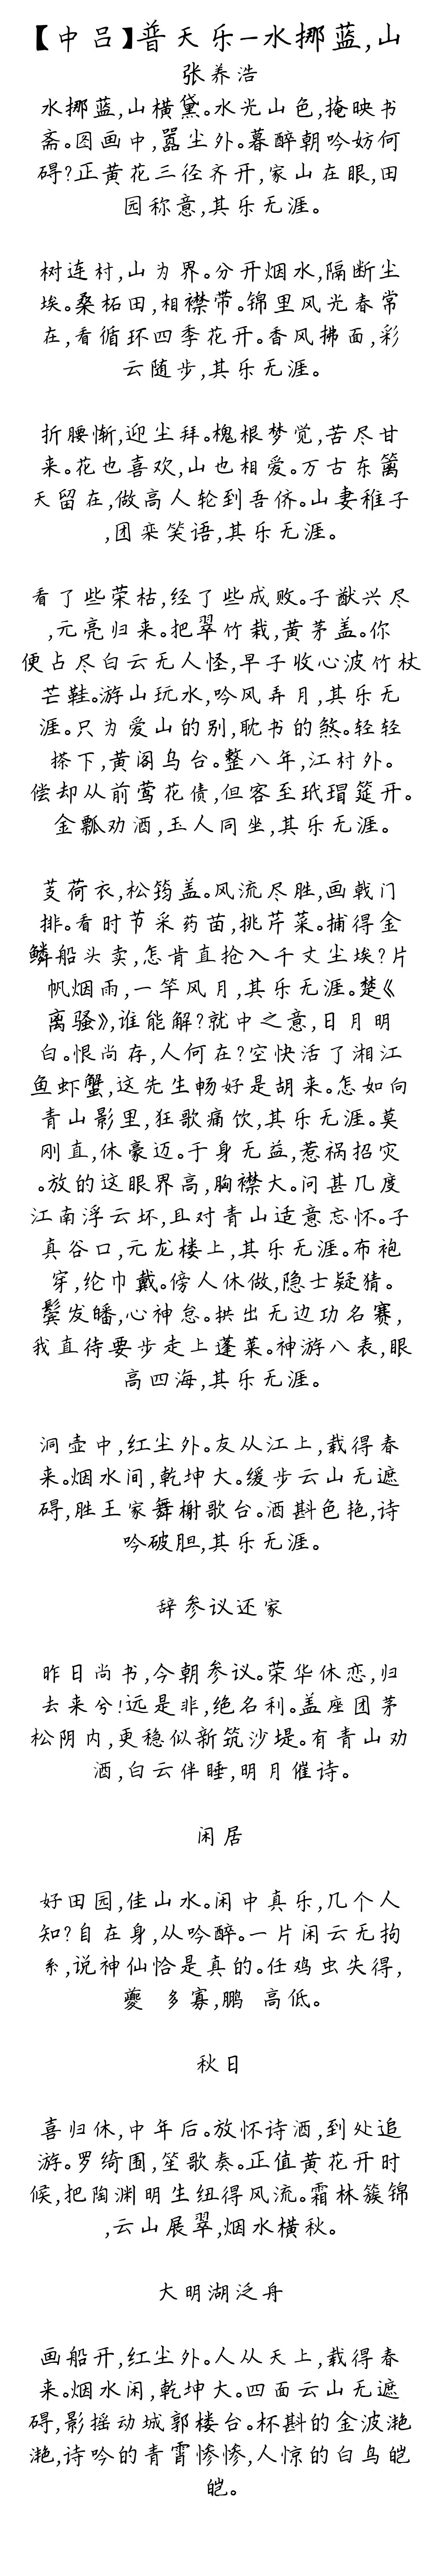 【中吕】普天乐-水挪蓝,山
张养浩
水挪蓝,山横黛。水光山色,掩映书
斋。图画中,嚣尘外。暮醉朝吟妨何
碍?正黄花三径齐开,家山在眼,田
园称意,其乐无涯。
树连村,山为界。分开烟水,隔断尘
埃。桑柘田,相襟带。锦里风光春常
在,看循环四季花开。香风拂面,彩
云随步,其乐无涯。
折腰惭,迎尘拜。槐根梦觉,苦尽甘
来。花也喜欢,山也相爱。万古东篱
天留在,做高人轮到吾侪。山妻稚子
,团栾笑语,其乐无涯。
看了些荣枯,经了些成败。子猷兴尽
,元亮归来。把翠竹栽,黄茅盖。你
便占尽白云无人怪,早子收心波竹杖
芒鞋。游山玩水,吟风弄月,其乐无
涯。只为爱山的别,耽书的煞。轻轻
搽下,黄阁乌台。整八年,江村外。
偿却从前莺花债,但客至玳瑁筵开。
金瓢劝酒,玉人同坐,其乐无涯。
芰荷衣,松筠盖。风流尽胜,画戟门
排。看时节采药苗,挑芹菜。捕得金
鳞船头卖,怎肯直抢入千丈尘埃?片
帆烟雨,一竿风月,其乐无涯。楚《
离骚》,谁能解?就中之意,日月明
白。恨尚存,人何在?空快活了湘江
鱼虾蟹,这先生畅好是胡来。怎如向
青山影里,狂歌痛饮,其乐无涯。莫
刚直,休豪迈。于身无益,惹祸招灾
。放的这眼界高,胸襟大。问甚几度
江南浮云坏,且对青山适意忘怀。子
真谷口,元龙楼上,其乐无涯。布袍
穿,纶巾戴。傍人休做,隐士疑猜。
鬓发皤,心神怠。拱出无边功名赛,
我直待要步走上蓬莱。神游八表,眼
高四海,其乐无涯。
洞壶中,红尘外。友从江上,载得春
来。烟水间,乾坤大。缓步云山无遮
碍,胜王家舞榭歌台。酒斟色艳,诗
吟破胆,其乐无涯。
辞参议还家
昨日尚书,今朝参议。荣华休恋,归
去来兮!远是非,绝名利。盖座团茅
松阴内,更稳似新筑沙堤。有青山劝
酒,白云伴睡,明月催诗。
闲居
好田园,佳山水。闲中真乐,几个人
知?自在身,从吟醉。一片闲云无拘
系,说神仙恰是真的。任鸡虫失得,
夔 多寡,鹏 高低。
秋日
喜归休,中年后。放怀诗酒,到处追
游。罗绮围,笙歌奏。正值黄花开时
候,把陶渊明生纽得风流。霜林簇锦
,云山展翠,烟水横秋。
大明湖泛舟
画船开,红尘外。人从天上,载得春
来。烟水闲,乾坤大。四面云山无遮
碍,影摇动城郭楼台。杯斟的金波滟
滟,诗吟的青霄惨惨,人惊的白鸟皑
皑。